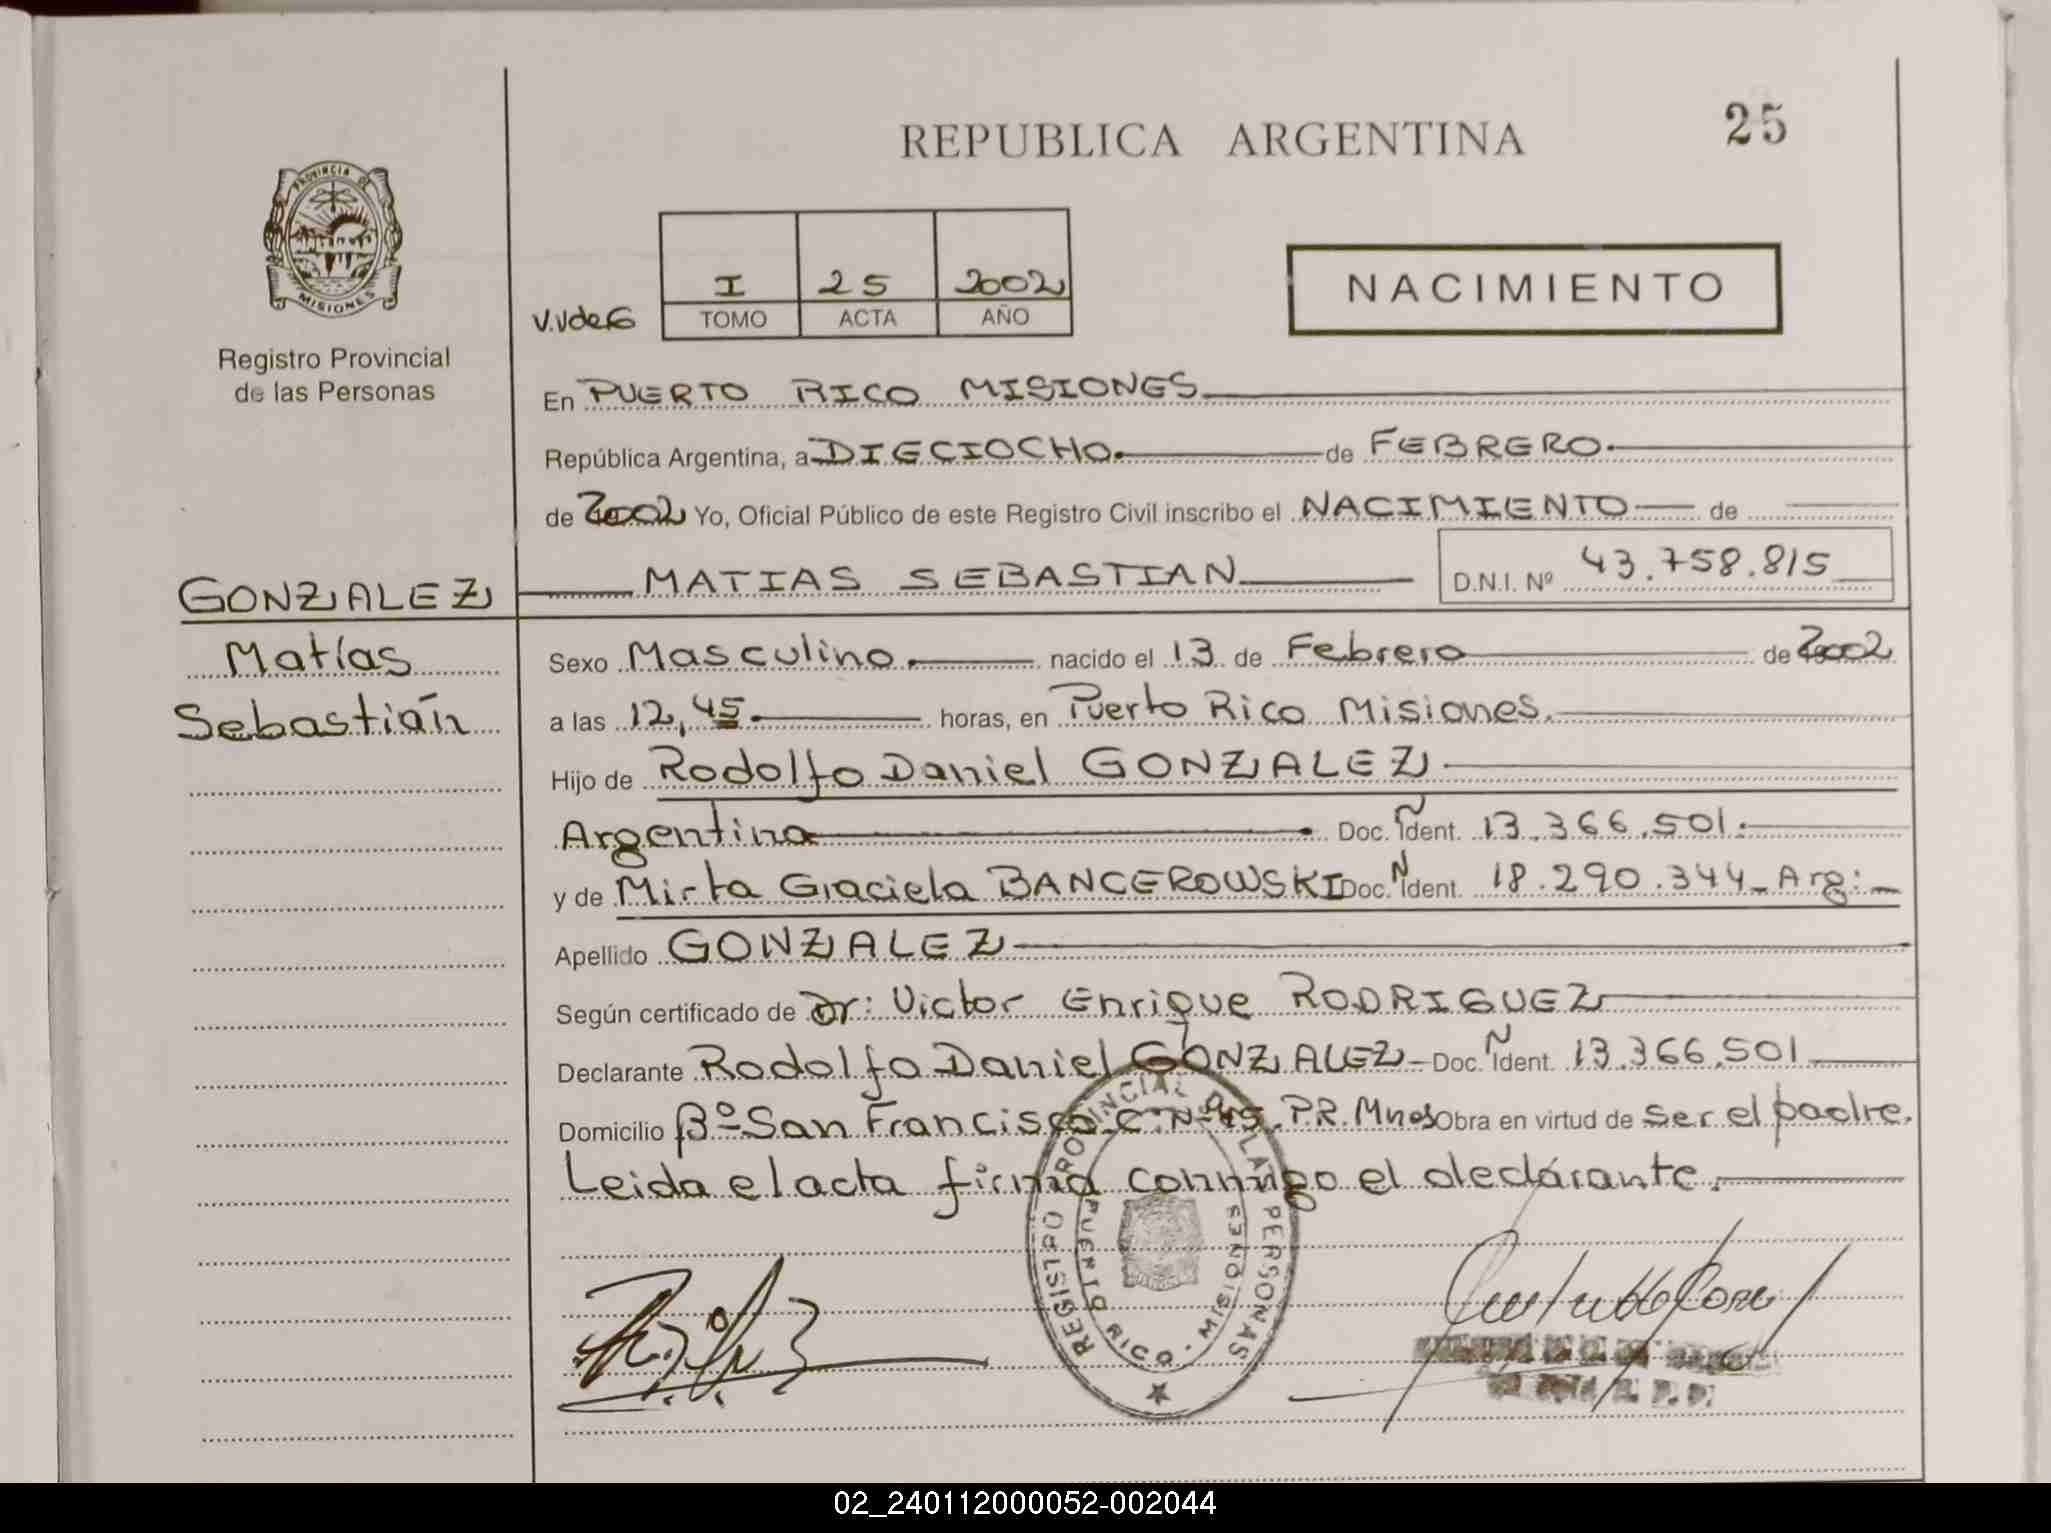 REPUBLICA ARGENTINA
25
PROVINCIA DE
MISIONES
Registro Provincial
de las Personas
V.VdeG
I 25 2002
TOMO ACTA AÑO
NACIMIENTO
En PUERTO RICO MISIONES
República Argentina, a DIECIOCHO. de FEBRERO.
de 2002 Yo, Oficial Público de este Registro Civil inscribo el NACIMIENTO de
MATIAS SEBASTIAN
D.N.I. Nº 43.758.815
GONZALEZ
Matías
Sebastián
Sexo Masculino. nacido el 13 de Febrero de 2002
a las 12,45. horas, en Puerto Rico Misiones.
Hijo de Rodolfo Daniel GONZALEZ.
Argentina Doc. Ident. 13.366.501.
y de Mirta Graciela BANCEROWSKI Doc. Ident. 18.290.344_ Arg:
Apellido GONZALEZ
Según certificado de Dr: Victor Enrique RODRIGUEZ
Declarante Rodolfo Daniel GONZALEZ Doc. Ident. 13.366.501
Domicilio Bº San Francisco C: Nº 45. P.R. Mnes Obra en virtud de ser el padre.
Leida el acta firma conmigo el declarante.
REGISTRO PROVINCIAL DE LAS PERSONAS
PUERTO RICO - MISIONES
02_240112000052-002044